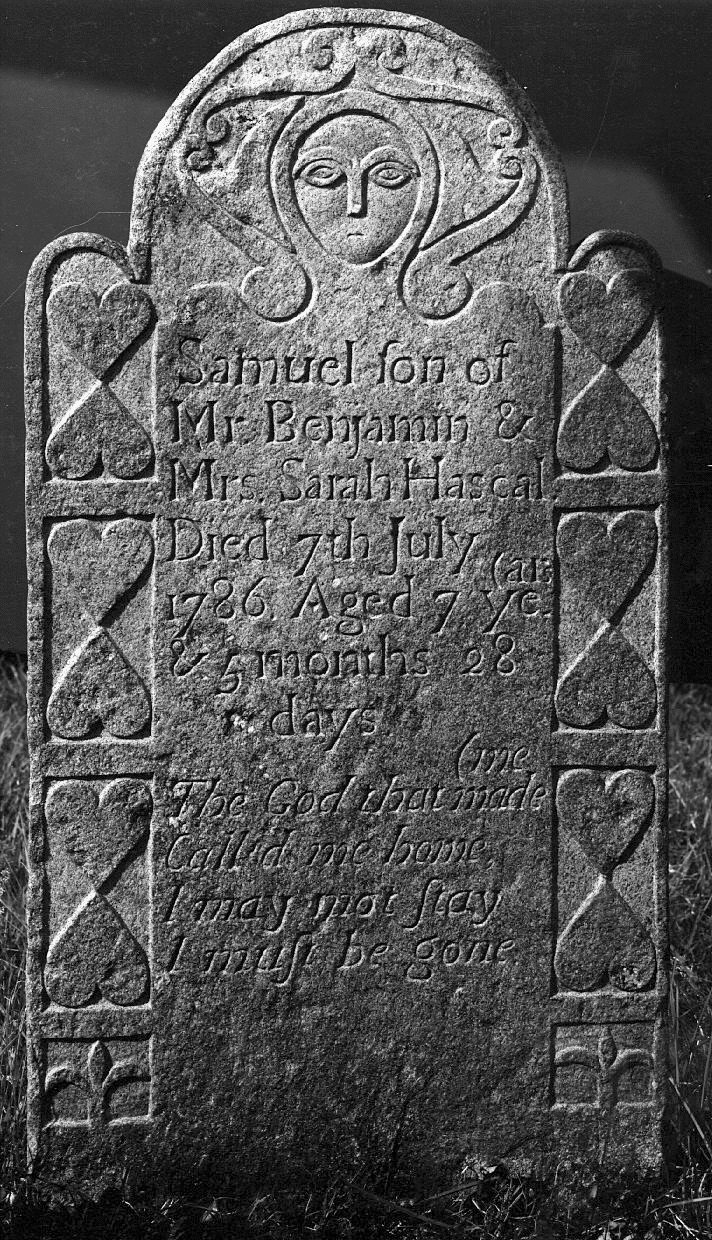 Samuel ſon of
Mr. Benjamin &
Mrs. Sarah Hascal.
Died 7th July
(ars
1786. Aged 7 ye.
& 5 months 28
days.
(me
The God that made
Call'd me home,
I may not ſtay
I muſt be gone.